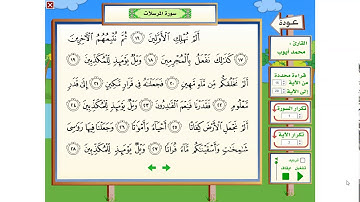 سورة المرسلات
أَلَمْ نُهْلِكِ ٱلْأَوَّلِينَ ١٦ ثُمَّ نُتْبِعُهُمُ ٱلْـَٔاخِرِينَ
١٧ كَذَٰلِكَ نَفْعَلُ بِٱلْمُجْرِمِينَ ١٨ وَيْلٌ يَوْمَئِذٍ لِّلْمُكَذِّبِينَ ١٩
أَلَمْ نَخْلُقكُّم مِّن مَّآءٍ مَّهِينٍ ٢٠ فَجَعَلْنَٰهُ فِى قَرَارٍ مَّكِينٍ ٢١ إِلَىٰ قَدَرٍ
مَّعْلُومٍ ٢٢ فَقَدَرْنَا فَنِعْمَ ٱلْقَٰدِرُونَ ٢٣ وَيْلٌ يَوْمَئِذٍ لِّلْمُكَذِّبِينَ ٢٤
أَلَمْ نَجْعَلِ ٱلْأَرْضَ كِفَاتًا ٢٥ أَحْيَآءً وَأَمْوَٰتًا ٢٦ وَجَعَلْنَا فِيهَا رَوَٰسِىَ
شَٰمِخَٰتٍ وَأَسْقَيْنَٰكُم مَّآءً فُرَاتًا ٢٧ وَيْلٌ يَوْمَئِذٍ لِّلْمُكَذِّبِينَ ٢٨
عودة
القارئ :
محمد أيوب
قراءة محددة
من الآية
إلى الآية
تكرار السورة
تكرار الآية
تشغيل إيقاف